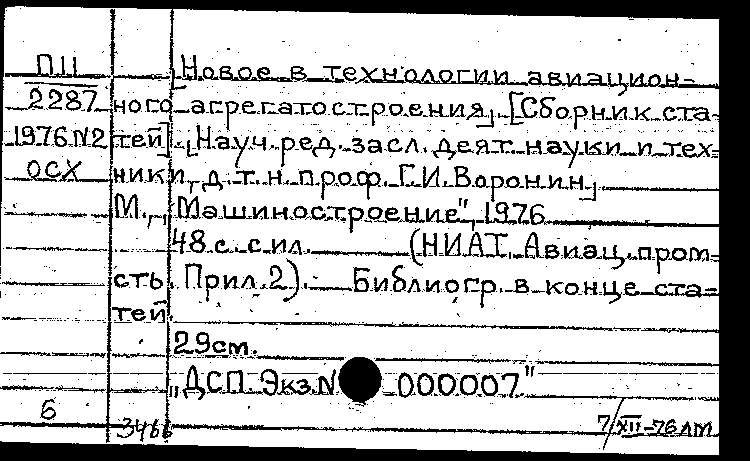 ПII
2287
1976 N2
ОСХ
[Новое в технологии авиацион-
ного агрегатостроения]. [Сборник ста-
тей]. [Науч. ред. засл. деят. науки и тех-
ники, д. т. н. проф. Г. И. Воронин]
М., „Машиностроение", 1976
48 с. с ил. (НИАТ. Авиац. пром-
сть. Прил. 2). Библиогр. в конце ста-
тей.
29 см.
„ДСП. Экз. N 000007"
6
3466
7/XII-76 ЛМ